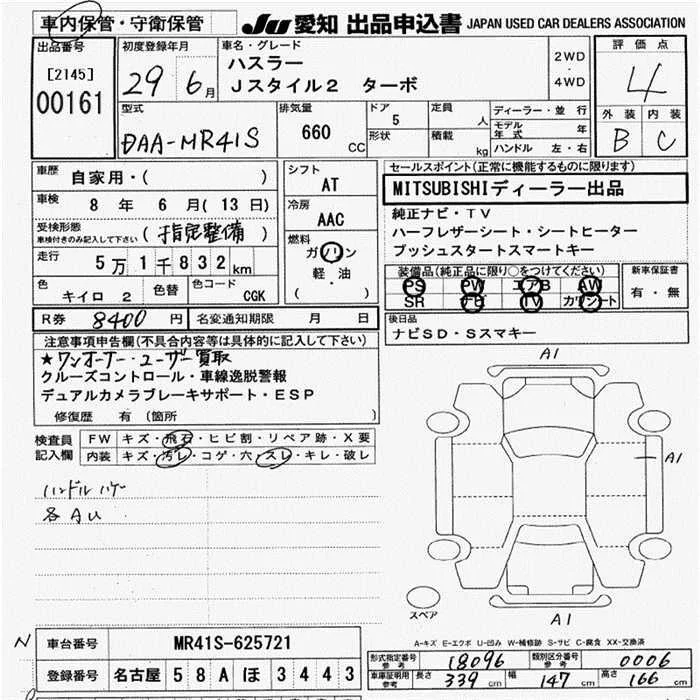 車内保管・守衛保管
JU 愛知 出品申込書 JAPAN USED CAR DEALERS ASSOCIATION
出品番号
[2145]
00161
初度登録年月
29 6月
車名・グレード
ハスラー
Jスタイル2 ターボ
2WD
・
4WD
評価点
4
外装 内装
B C
型式
DAA-MR41S
排気量
660
CC
ドア
5
形状
定員
人
積載
kg
ディーラー・並行
モデル年式 年
ハンドル 左・右
車歴
自家用・( )
車検
8 年 6 月(13日)
受検形態
車検付きのみ記入して下さい
(指定整備)
走行
5万1千832km
色
キイロ 2
色替
色コード
CGK
シフト
AT
冷房
AAC
燃料
ガソリン
軽・油
( )
セールスポイント(正常に機能するものに限ります)
MITSUBISHIディーラー出品
純正ナビ・TV
ハーフレザーシート・シートヒーター
プッシュスタートスマートキー
装備品(純正品に限り○をつけてください)
PS PW エアB AW
SR ナビ TV カワシート
新車保証書
有・無
R券 8400 円
名変通知期限 月 日
後日品
ナビSD・Sスマキー
注意事項申告欄(不具合内容等は具体的に記入して下さい)
★ワンオーナー・ユーザー買取
クルーズコントロール・車線逸脱警報
デュアルカメラブレーキサポート・ESP
修復歴 有 (箇所 )
検査員
記入欄
FW キズ・飛石・ヒビ割・リペア跡・X要
内装 キズ・汚レ・コゲ・穴・スレ・キレ・破レ
ハンドルハゲ
各AU
A1
A1
A1
スペア
A-キズ E-エクボ U-凹み W-補修跡 S-サビ C-腐食 XX-交換済
N
車台番号 MR41S-625721
登録番号 名古屋 58A ほ 3443
形式指定番号
参考
18096
類別区分番号
参考
0006
車庫証明用
参考
長さ 339 cm 幅 147 cm 高さ 166 cm